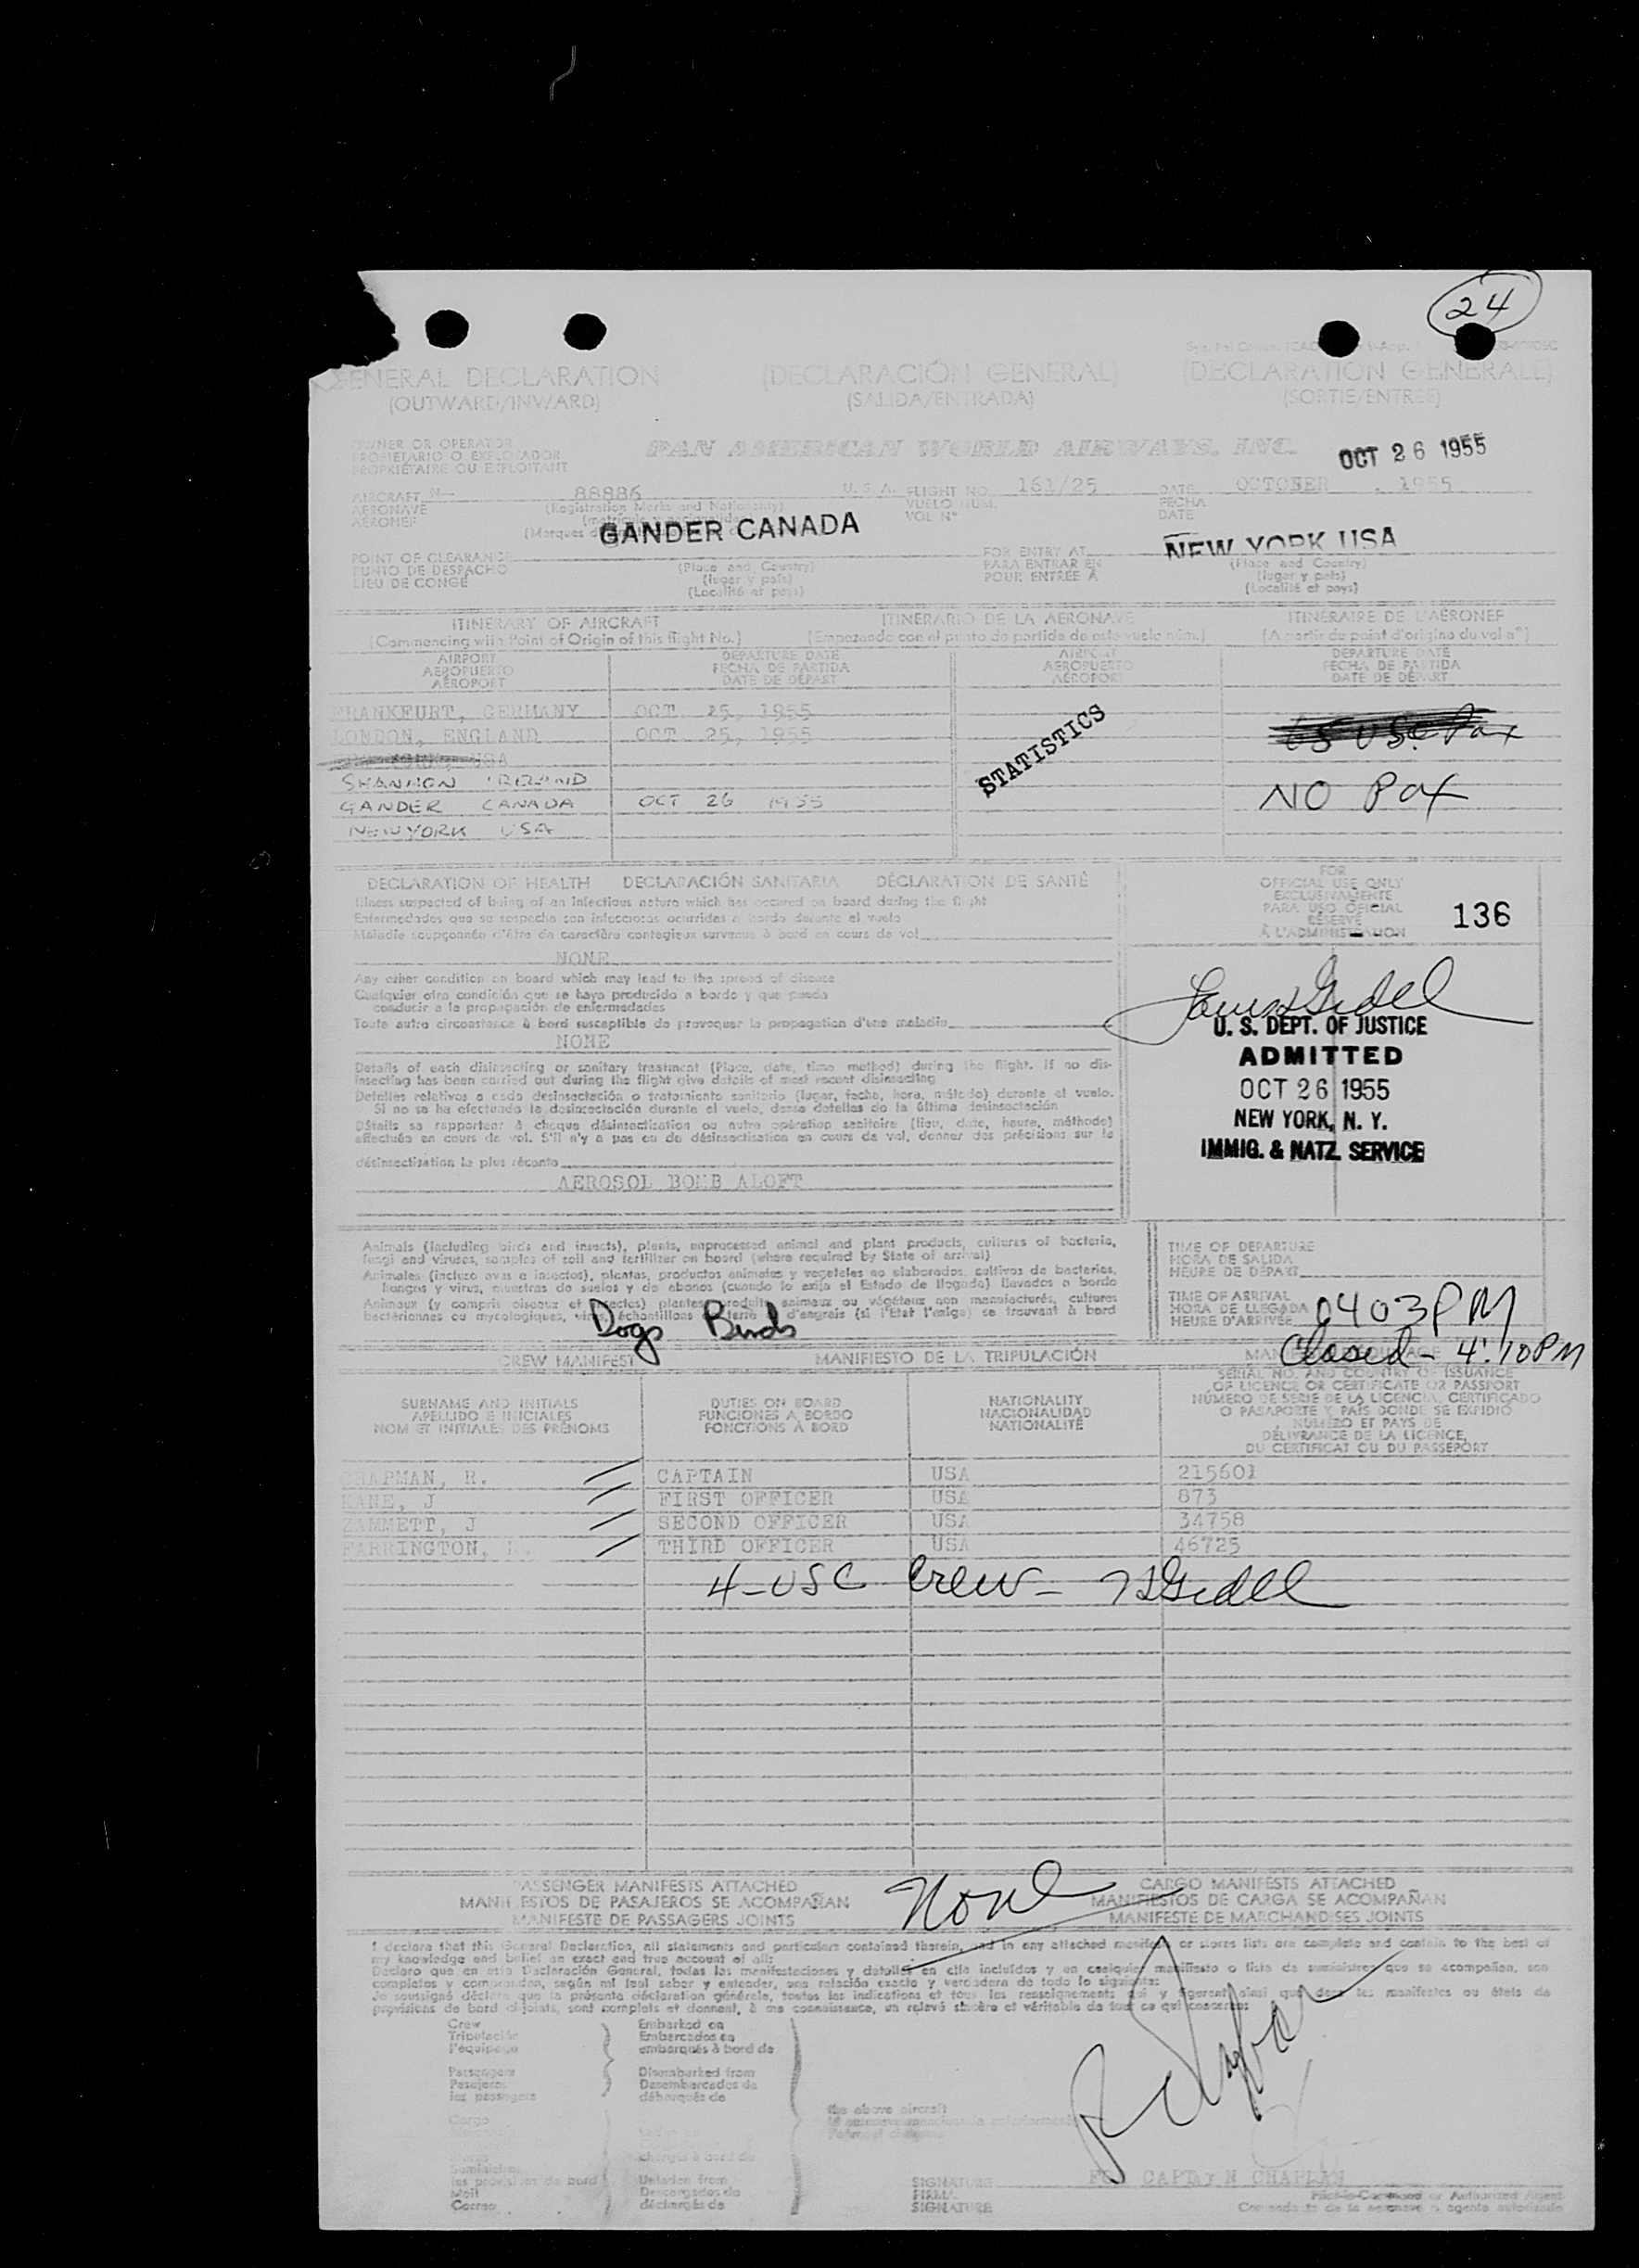 24
GENERAL DECLARATION (DECLARACIÓN GENERAL) (DECLARATION GENERALE)
(OUTWARD/INWARD) (SALIDA/ENTRADA) (SORTIE/ENTREE)
OWNER OR OPERATOR
PROPIETARIO O EXPLOTADOR
PROPRIÉTAIRE OU EXPLOITANT
PAN AMERICAN WORLD AIRWAYS, INC.
OCT 26 1955
AIRCRAFT N— 88886 U. S. A. FLIGHT NO. 161/25 DATE OCTOBER , 1955
AERONAVE (Registration Marks and Nationality) VUELO NUM. FECHA
AÉRONEF VOL Nº DATE
GANDER CANADA
NEW YORK USA
POINT OF CLEARANCE (Place and Country) FOR ENTRY AT (Place and Country)
PUNTO DE DESPACHO (lugar y país) PARA ENTRAR EN (lugar y país)
LIEU DE CONGÉ (Localité et pays) POUR ENTRÉE À (Localité et pays)
ITINERARY OF AIRCRAFT ITINERARIO DE LA AERONAVE ITINÉRAIRE DE L'AÉRONEF
(Commencing with Point of Origin of this flight No.) (Empezando con el punto de partida de este vuelo núm.) (A partir du point d'origine du vol nº)
AIRPORT DEPARTURE DATE AIRPORT DEPARTURE DATE
AEROPUERTO FECHA DE PARTIDA AEROPUERTO FECHA DE PARTIDA
AÉROPORT DATE DE DÉPART AÉROPORT DATE DE DÉPART
FRANKFURT, GERMANY OCT 25, 1955
LONDON, ENGLAND OCT 25, 1955
USA
SHANNON IRELAND
GANDER CANADA OCT 26 1955
NEW YORK USA
STATISTICS
NO Pax
DECLARATION OF HEALTH DECLARACIÓN SANITARIA DÉCLARATION DE SANTÉ
Illness suspected of being of an infectious nature which has occured on board during the flight
Enfermedades que se sospecha son infecciosas ocurridas a bordo durante el vuelo
Maladie soupçonnée d'être de caractère contagieux survenue à bord en cours de vol
NONE
Any other condition on board which may lead to the spread of disease
Cualquier otra condición que se haya producido a bordo y que pueda
conducir a la propagación de enfermedades
Toute autre circonstance à bord susceptible de provoquer la propagation d'une maladie
NONE
Details of each disinsecting or sanitary treatment (Place, date, time method) during the flight. If no dis-
insecting has been carried out during the flight give details of most recent disinsecting
Detalles relativos a cada desinsectación o tratamiento sanitario (lugar, fecha, hora, método) durante el vuelo.
Si no se ha efectuado la desinsectación durante el vuelo, dense detalles de la última desinsectación
Détails se rapportant à chaque désinsectisation ou autre opération sanitaire (lieu, date, heure, méthode)
effectuée en cours de vol. S'il n'y a pas eu de désinsectisation en cours de vol, donner des précisions sur la
désinsectisation la plus récente
AEROSOL BOMB ALOFT
FOR
OFFICIAL USE ONLY
EXCLUSIVAMENTE
PARA USO OFICIAL
RÉSERVÉ
À L'ADMINISTRATION
136
U. S. DEPT. OF JUSTICE
ADMITTED
OCT 26 1955
NEW YORK, N. Y.
IMMIG. & NATZ. SERVICE
Animals (including birds and insects), plants, unprocessed animal and plant products, cultures of bacteria,
fungi and viruses, samples of soil and fertilizer on board (where required by State of arrival)
Animales (incluso aves e insectos), plantas, productos animales y vegetales no elaborados, cultivos de bacterias,
hongos y virus, muestras de suelos y de abonos (cuando lo exija el Estado de llegada) llevados a bordo
Animaux (y compris oiseaux et insectes) plantes, produits animaux ou végétaux non manufacturés, cultures
bactériennes ou mycologiques, virus, échantillons d'engrais (si l'Etat l'exige) se trouvant à bord
Dogs Birds
TIME OF DEPARTURE
HORA DE SALIDA
HEURE DE DÉPART
TIME OF ARRIVAL
HORA DE LLEGADA
HEURE D'ARRIVÉE
0403PM
Closed - 4:10PM
CREW MANIFEST MANIFIESTO DE LA TRIPULACIÓN
SURNAME AND INITIALS DUTIES ON BOARD NATIONALITY
APELLIDO E INICIALES FUNCIONES A BORDO NACIONALIDAD
NOM ET INITIALES DES PRÉNOMS FONCTIONS À BORD NATIONALITÉ
SERIAL NO. AND COUNTRY OF ISSUANCE
OF LICENCE OR CERTIFICATE OR PASSPORT
NÚMERO DE SERIE DE LA LICENCIA, CERTIFICADO
O PASAPORTE Y PAIS DONDE SE EXPIDIÓ
NUMÉRO ET PAYS DE
DÉLIVRANCE DE LA LICENCE,
DU CERTIFICAT OU DU PASSEPORT
CHAPMAN, R. CAPTAIN USA 215601
KANE, J FIRST OFFICER USA 873
ZAMMETT, J SECOND OFFICER USA 34758
FARRINGTON, THIRD OFFICER USA 46725
4-USC Crew-
PASSENGER MANIFESTS ATTACHED CARGO MANIFESTS ATTACHED
MANIFIESTOS DE PASAJEROS SE ACOMPAÑAN MANIFIESTOS DE CARGA SE ACOMPAÑAN
MANIFESTE DE PASSAGERS JOINTS MANIFESTE DE MARCHANDISES JOINTS
None
I declare that this General Declaration, all statements and particulars contained therein, and in any attached manifests or stores lists are complete and contain to the best of
my knowledge and belief an exact and true account of all:
Declaro que en esta Declaración General, todas las manifestaciones y detalles en ella incluidos y en cualquier manifiesto o lista de suministros que se acompañen, son
completos y comprenden, según mi leal saber y entender, una relación exacta y verdadera de todo lo siguiente:
Je soussigné déclare que la présente déclaration générale, toutes les indications et tous les renseignements qui y figurent ainsi que dans les manifestes ou états de
provisions de bord ci-joints, sont complets et donnent, à ma connaissance, un relevé sincère et véritable de tout ce qui concerne:
Crew Embarked on
Tripulación Embarcados en
l'équipage embarqués à bord de
Passengers Disembarked from
Pasajeros Desembarcados de
les passagers débarqués de
the above aircraft
Cargo
chargés à bord de
les provisions de bord Unladen from
Mail Descargados de
Correo déchargés de
SIGNATURE
FIRMA
SIGNATURE
FOR CAPTAIN CHAPLAN
Pilot-in-Command or Authorized Agent
Comandante de la aeronave o agente autorizado